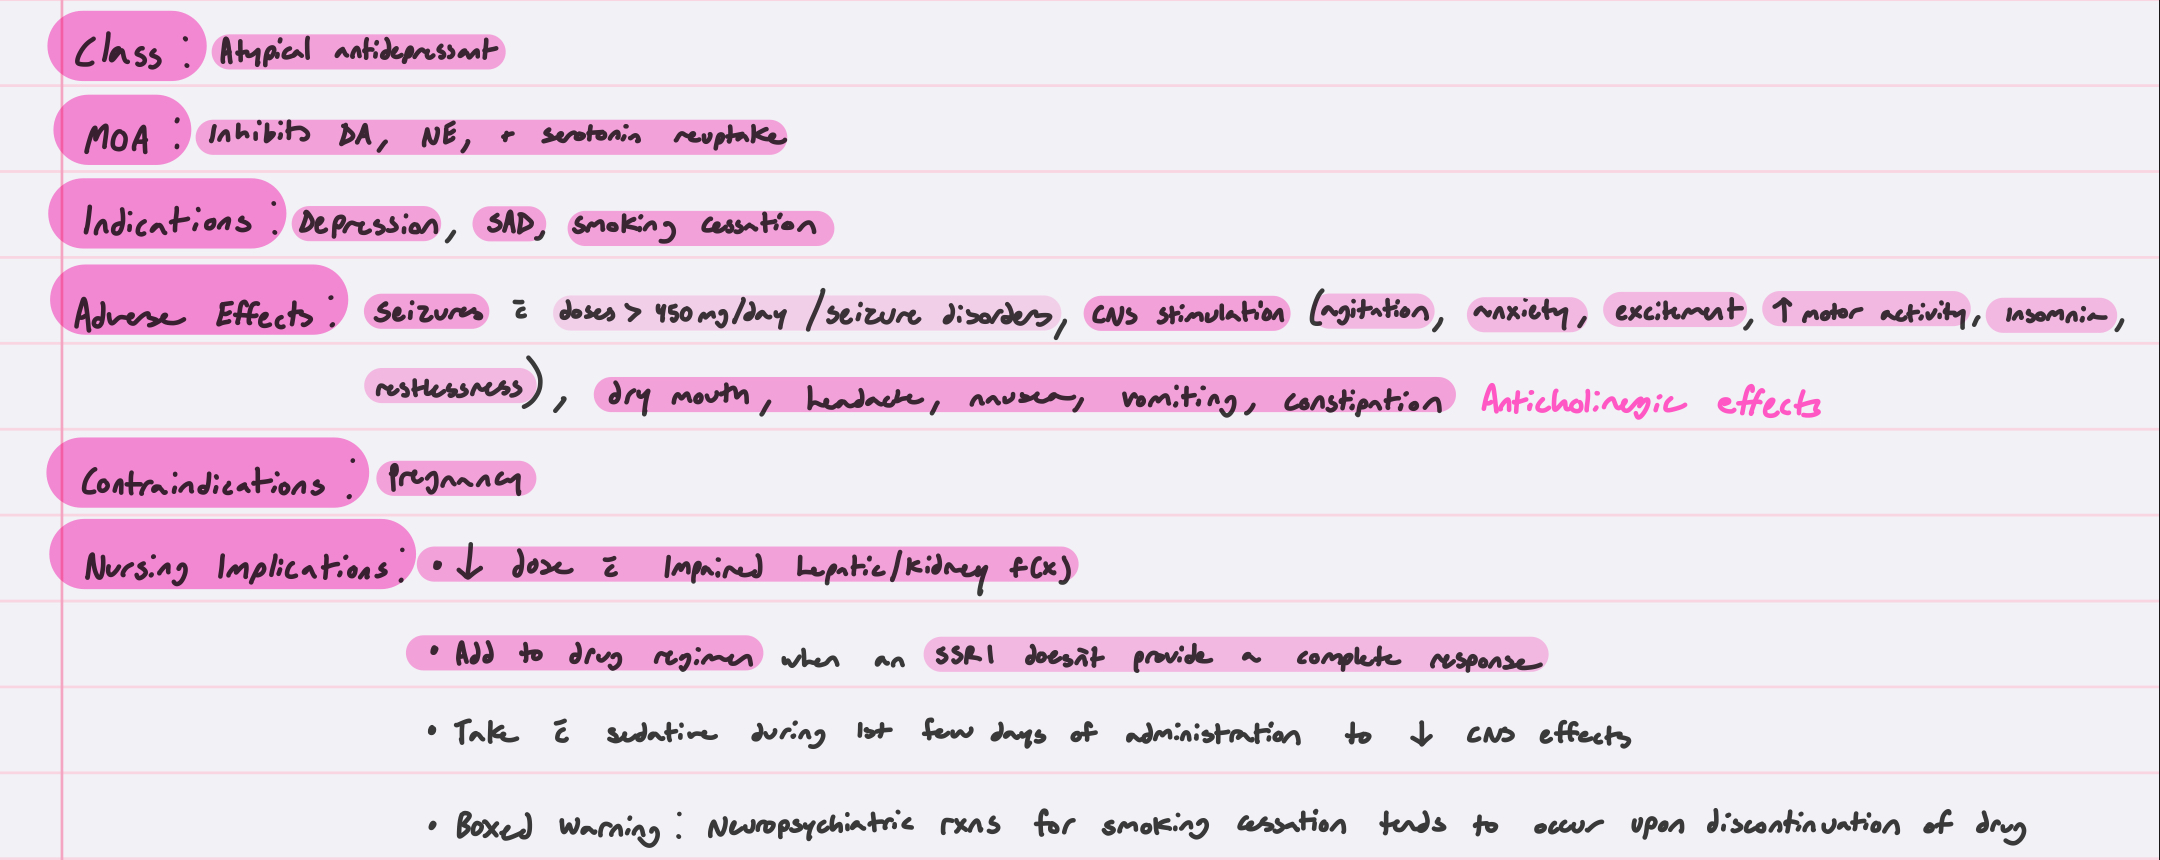 Class: Atypical antidepressant
MOA: Inhibits DA, NE, + serotonin reuptake
Indications: Depression, SAD, smoking cessation
Adverse Effects: Seizures c̄ doses > 450 mg/day / seizure disorders, CNS stimulation (agitation, anxiety, excitement, ↑ motor activity, insomnia,
restlessness), dry mouth, headache, nausea, vomiting, constipation Anticholinergic effects
Contraindications: Pregnancy
Nursing Implications: • ↓ dose c̄ impaired hepatic/kidney f(x)
• Add to drug regimen when an SSRI doesn't provide a complete response
• Take c̄ sedative during 1st few days of administration to ↓ CNS effects
• Boxed Warning: Neuropsychiatric rxns for smoking cessation tends to occur upon discontinuation of drug